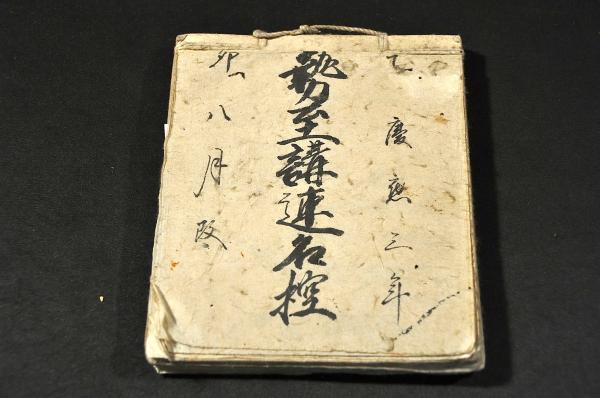 丁 慶應三年
勢至講連名控
卯 八月改